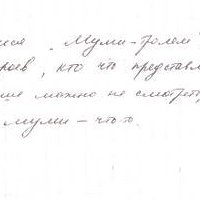 ися „Муми-ролем"
роев, кто что представл
ше можно не смотреть
муми – что-то